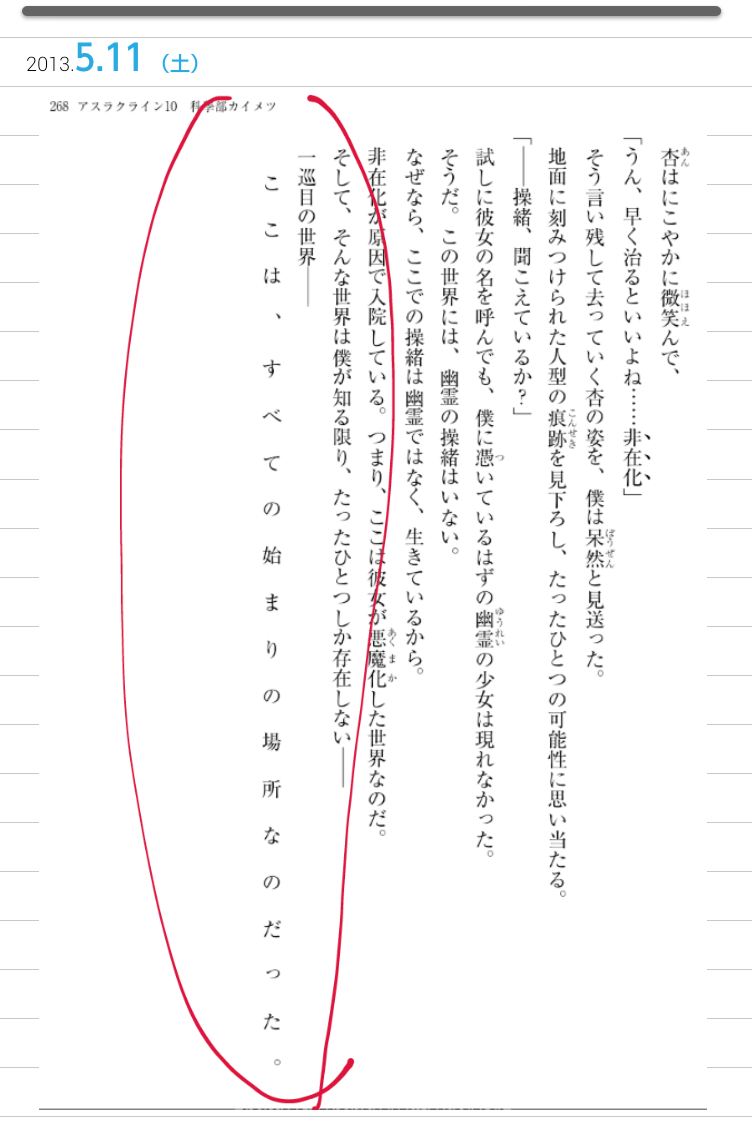 2013.5.11（土）
268 アスラクライン10 科学部カイメツ
杏はにこやかに微笑んで、
「うん、早く治るといいよね……非在化」
そう言い残して去っていく杏の姿を、僕は呆然と見送った。
地面に刻みつけられた人型の痕跡を見下ろし、たったひとつの可能性に思い当たる。
「――操緒、聞こえているか？」
試しに彼女の名を呼んでも、僕に憑いているはずの幽霊の少女は現れなかった。
そうだ。この世界には、幽霊の操緒はいない。
なぜなら、ここでの操緒は幽霊ではなく、生きているから。
非在化が原因で入院している。つまり、ここは彼女が悪魔化した世界なのだ。
そして、そんな世界は僕が知る限り、たったひとつしか存在しない――
一巡目の世界――
ここは、すべての始まりの場所なのだった。